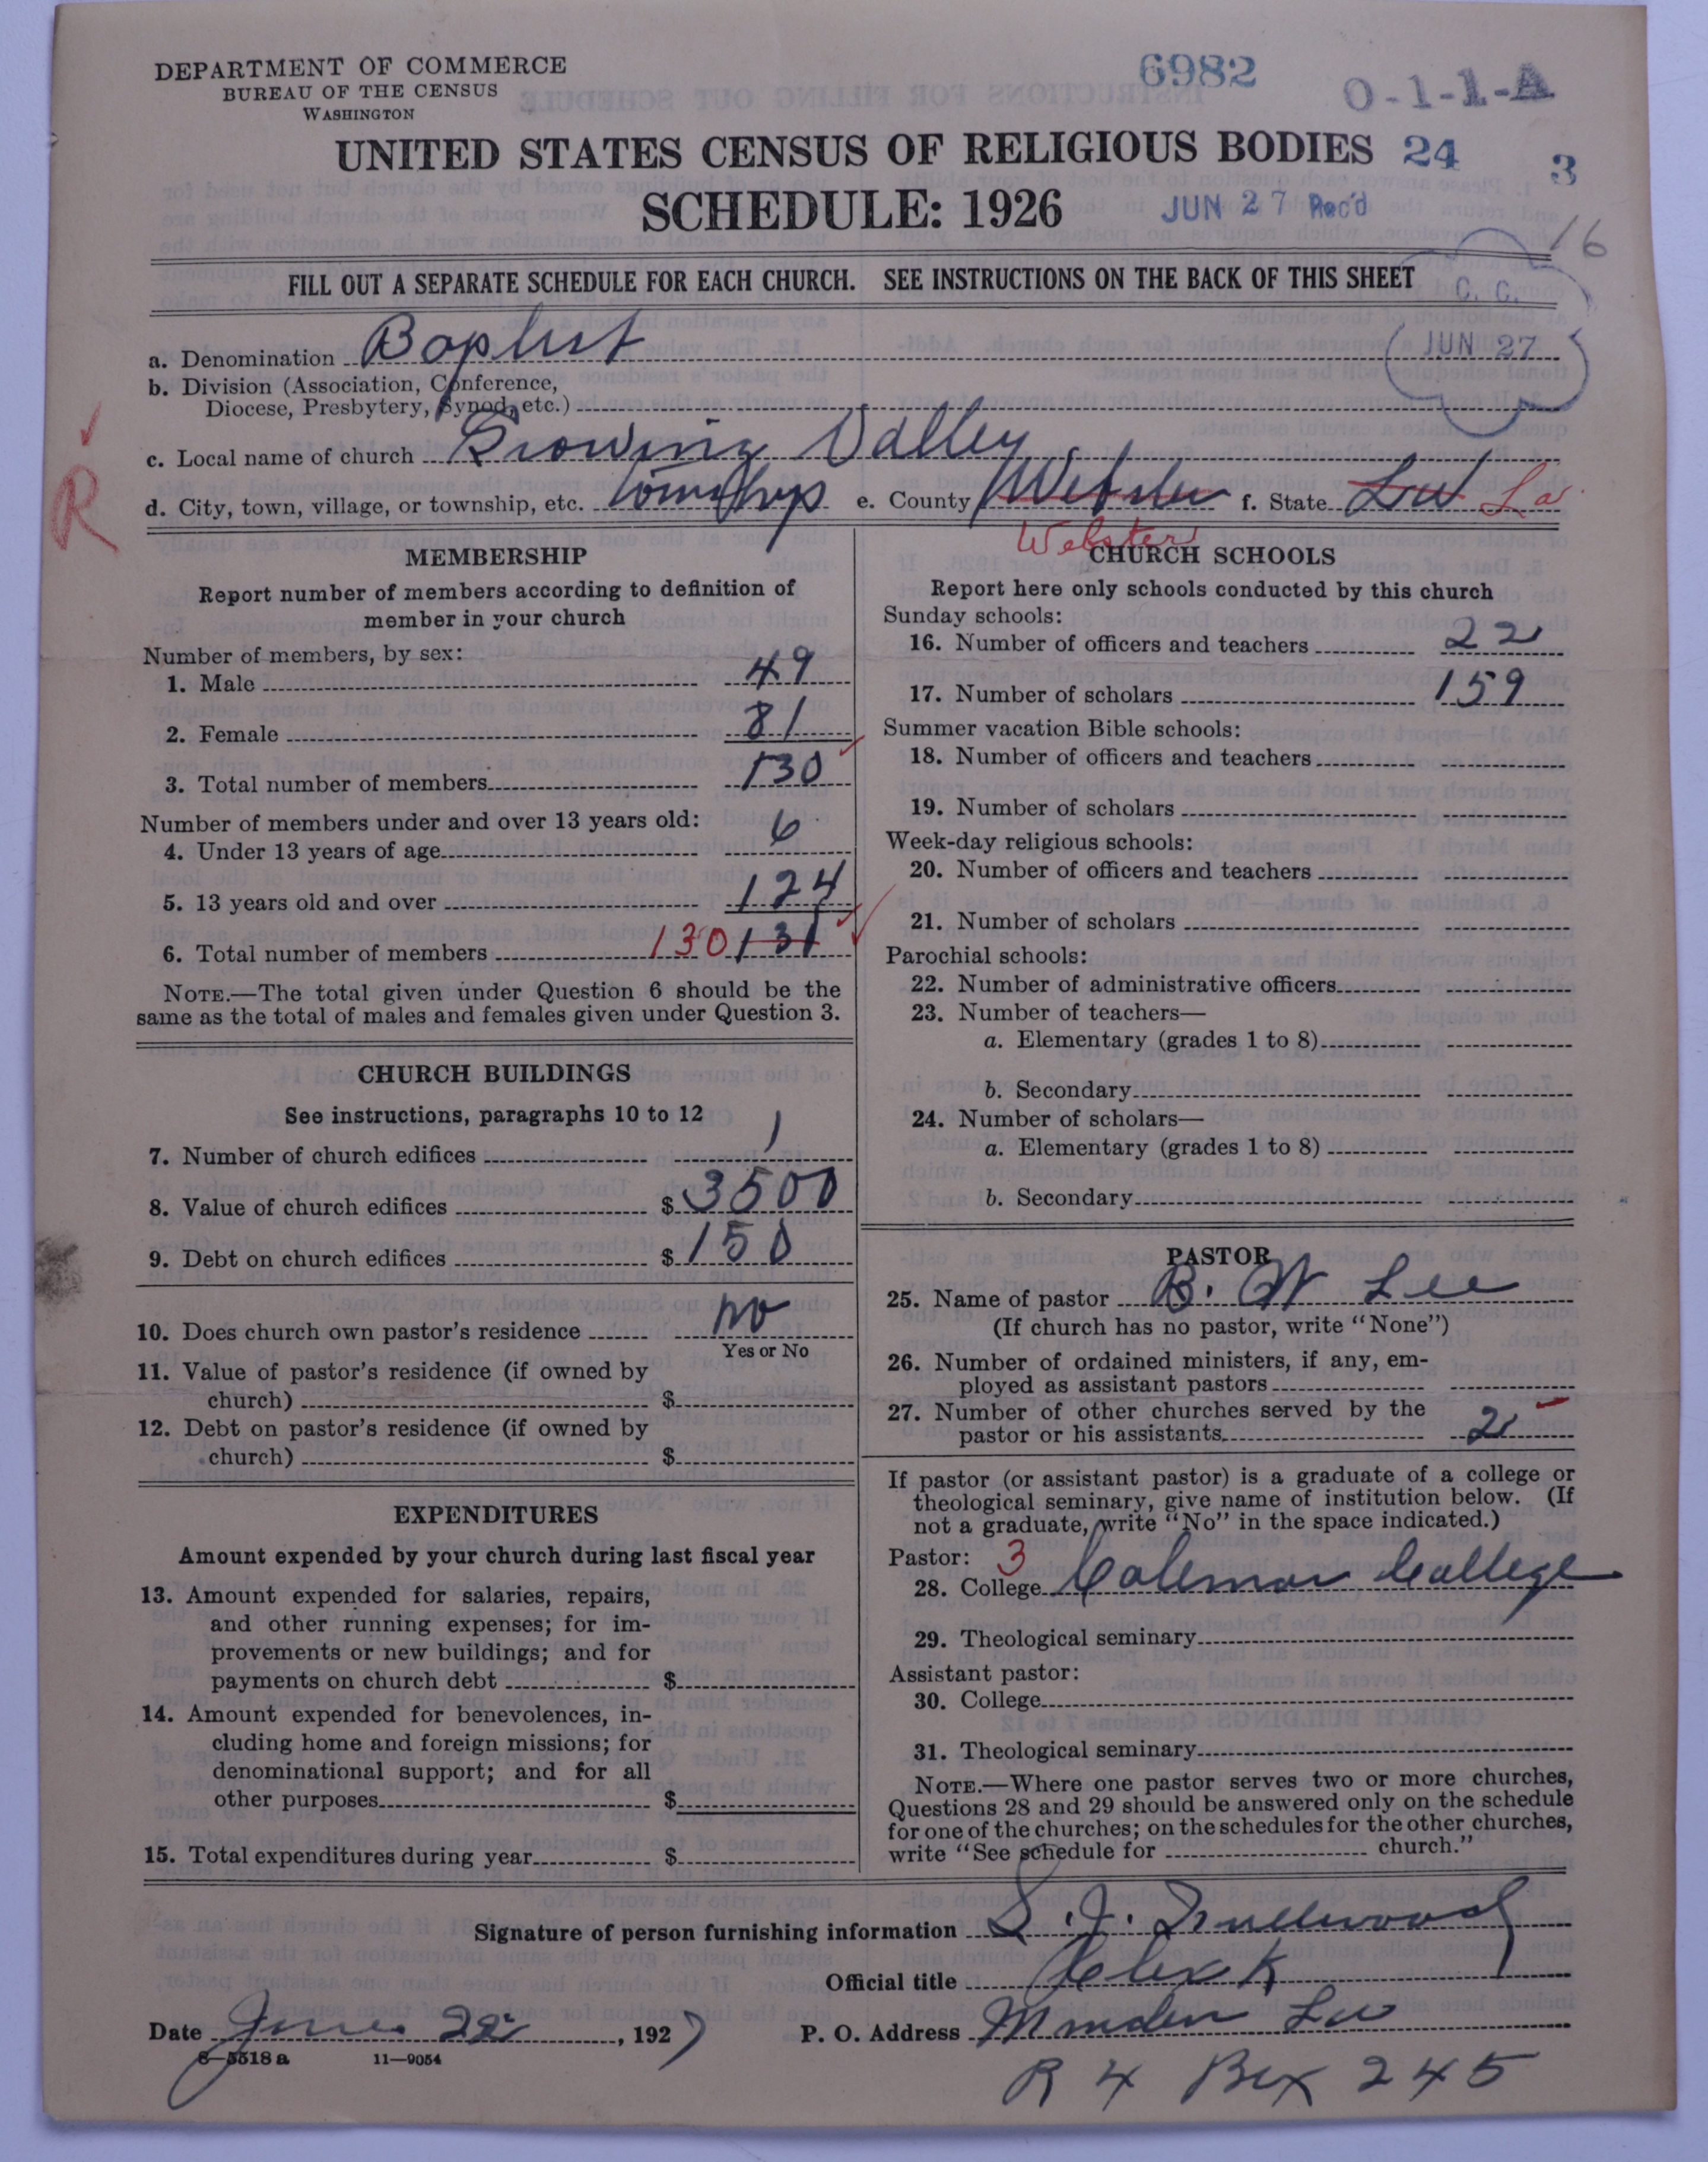 DEPARTMENT OF COMMERCE
BUREAU OF THE CENSUS
WASHINGTON
6982
0-1-1-A
UNITED STATES CENSUS OF RELIGIOUS BODIES 24 3
SCHEDULE: 1926 JUN 27 Rec'd
16
FILL OUT A SEPARATE SCHEDULE FOR EACH CHURCH. SEE INSTRUCTIONS ON THE BACK OF THIS SHEET
C. C.
JUN 27
a. Denomination Baptist
b. Division (Association, Conference,
Diocese, Presbytery, Synod, etc.)
c. Local name of church Growing Valley
R
d. City, town, village, or township, etc. township e. County Webster f. State La La
Webster
MEMBERSHIP
Report number of members according to definition of
member in your church
Number of members, by sex:
1. Male 49
2. Female 81
3. Total number of members 130
Number of members under and over 13 years old:
4. Under 13 years of age 6
5. 13 years old and over 124
6. Total number of members 130 131
NOTE.—The total given under Question 6 should be the
same as the total of males and females given under Question 3.
CHURCH BUILDINGS
See instructions, paragraphs 10 to 12
7. Number of church edifices 1
8. Value of church edifices $ 3500
9. Debt on church edifices $ 150
10. Does church own pastor's residence no
Yes or No
11. Value of pastor's residence (if owned by
church) $
12. Debt on pastor's residence (if owned by
church) $
EXPENDITURES
Amount expended by your church during last fiscal year
13. Amount expended for salaries, repairs,
and other running expenses; for im-
provements or new buildings; and for
payments on church debt $
14. Amount expended for benevolences, in-
cluding home and foreign missions; for
denominational support; and for all
other purposes $
15. Total expenditures during year $
CHURCH SCHOOLS
Report here only schools conducted by this church
Sunday schools:
16. Number of officers and teachers 22
17. Number of scholars 159
Summer vacation Bible schools:
18. Number of officers and teachers
19. Number of scholars
Week-day religious schools:
20. Number of officers and teachers
21. Number of scholars
Parochial schools:
22. Number of administrative officers
23. Number of teachers—
a. Elementary (grades 1 to 8)
b. Secondary
24. Number of scholars—
a. Elementary (grades 1 to 8)
b. Secondary
PASTOR
25. Name of pastor B. W Lee
(If church has no pastor, write "None")
26. Number of ordained ministers, if any, em-
ployed as assistant pastors
27. Number of other churches served by the
pastor or his assistants 2
If pastor (or assistant pastor) is a graduate of a college or
theological seminary, give name of institution below. (If
not a graduate, write "No" in the space indicated.)
Pastor: 3
28. College Coleman College
29. Theological seminary
Assistant pastor:
30. College
31. Theological seminary
NOTE.—Where one pastor serves two or more churches,
Questions 28 and 29 should be answered only on the schedule
for one of the churches; on the schedules for the other churches,
write "See schedule for church."
Signature of person furnishing information S. J.
Official title Clerk
Date June 22, 1927 P. O. Address Minden La
8-5518 a 11-9054
R 4 Box 245